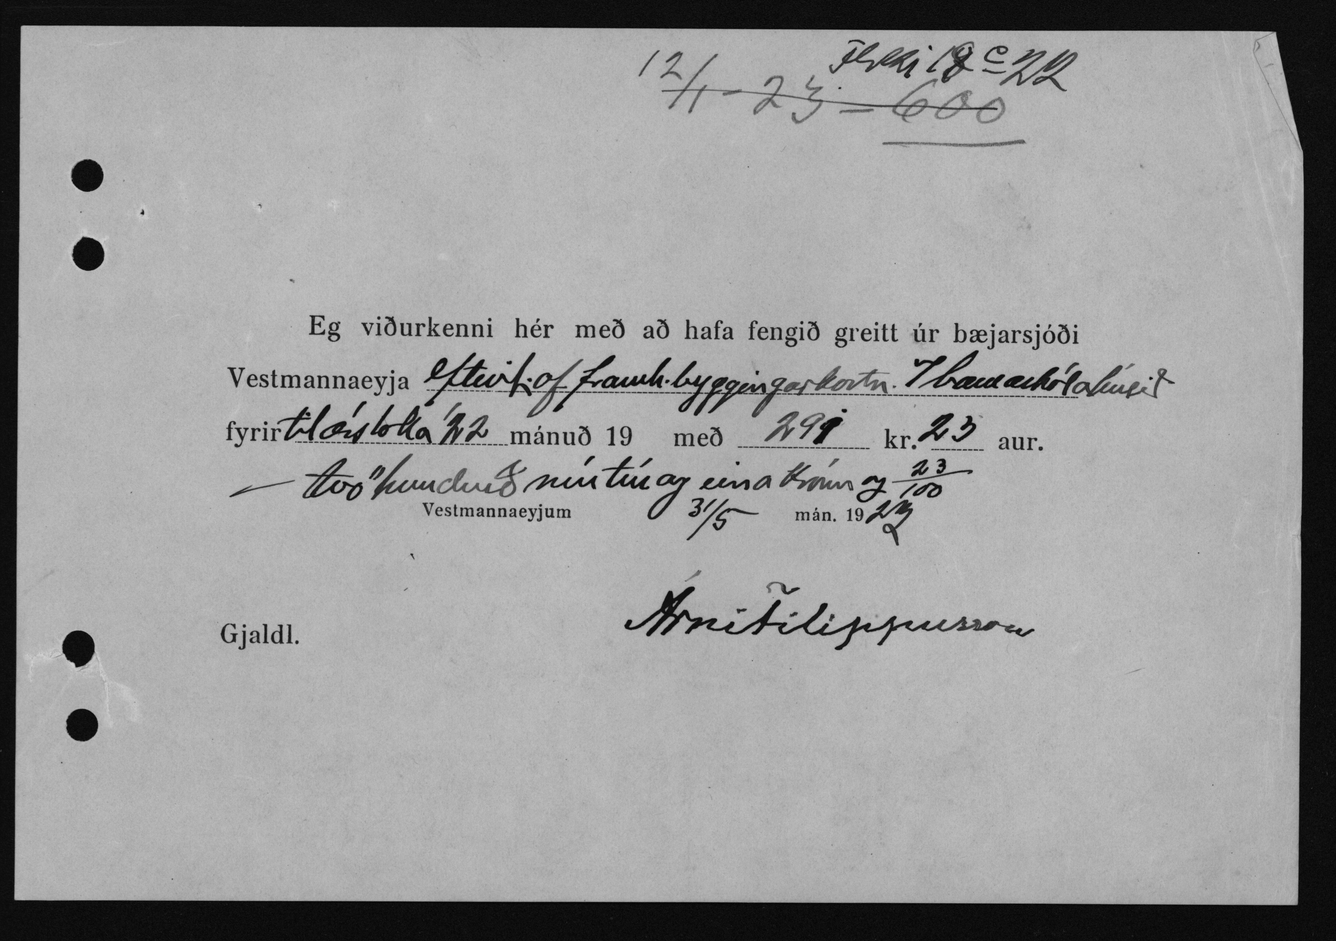 12/1 - 23 - 600
22
Eg viðurkenni hér með að hafa fengið greitt úr bæjarsjóði
Vestmannaeyja eftirlit af framh. byggingarkostn. barnaskólahúsið
fyrir til ársloka '22 mánuð 19 með 291 kr. 23 aur.
— tvö hundruð níutíu og eina krónu og 23/100
Vestmannaeyjum 31/5 mán. 1923
Árni Filippusson
Gjaldl.